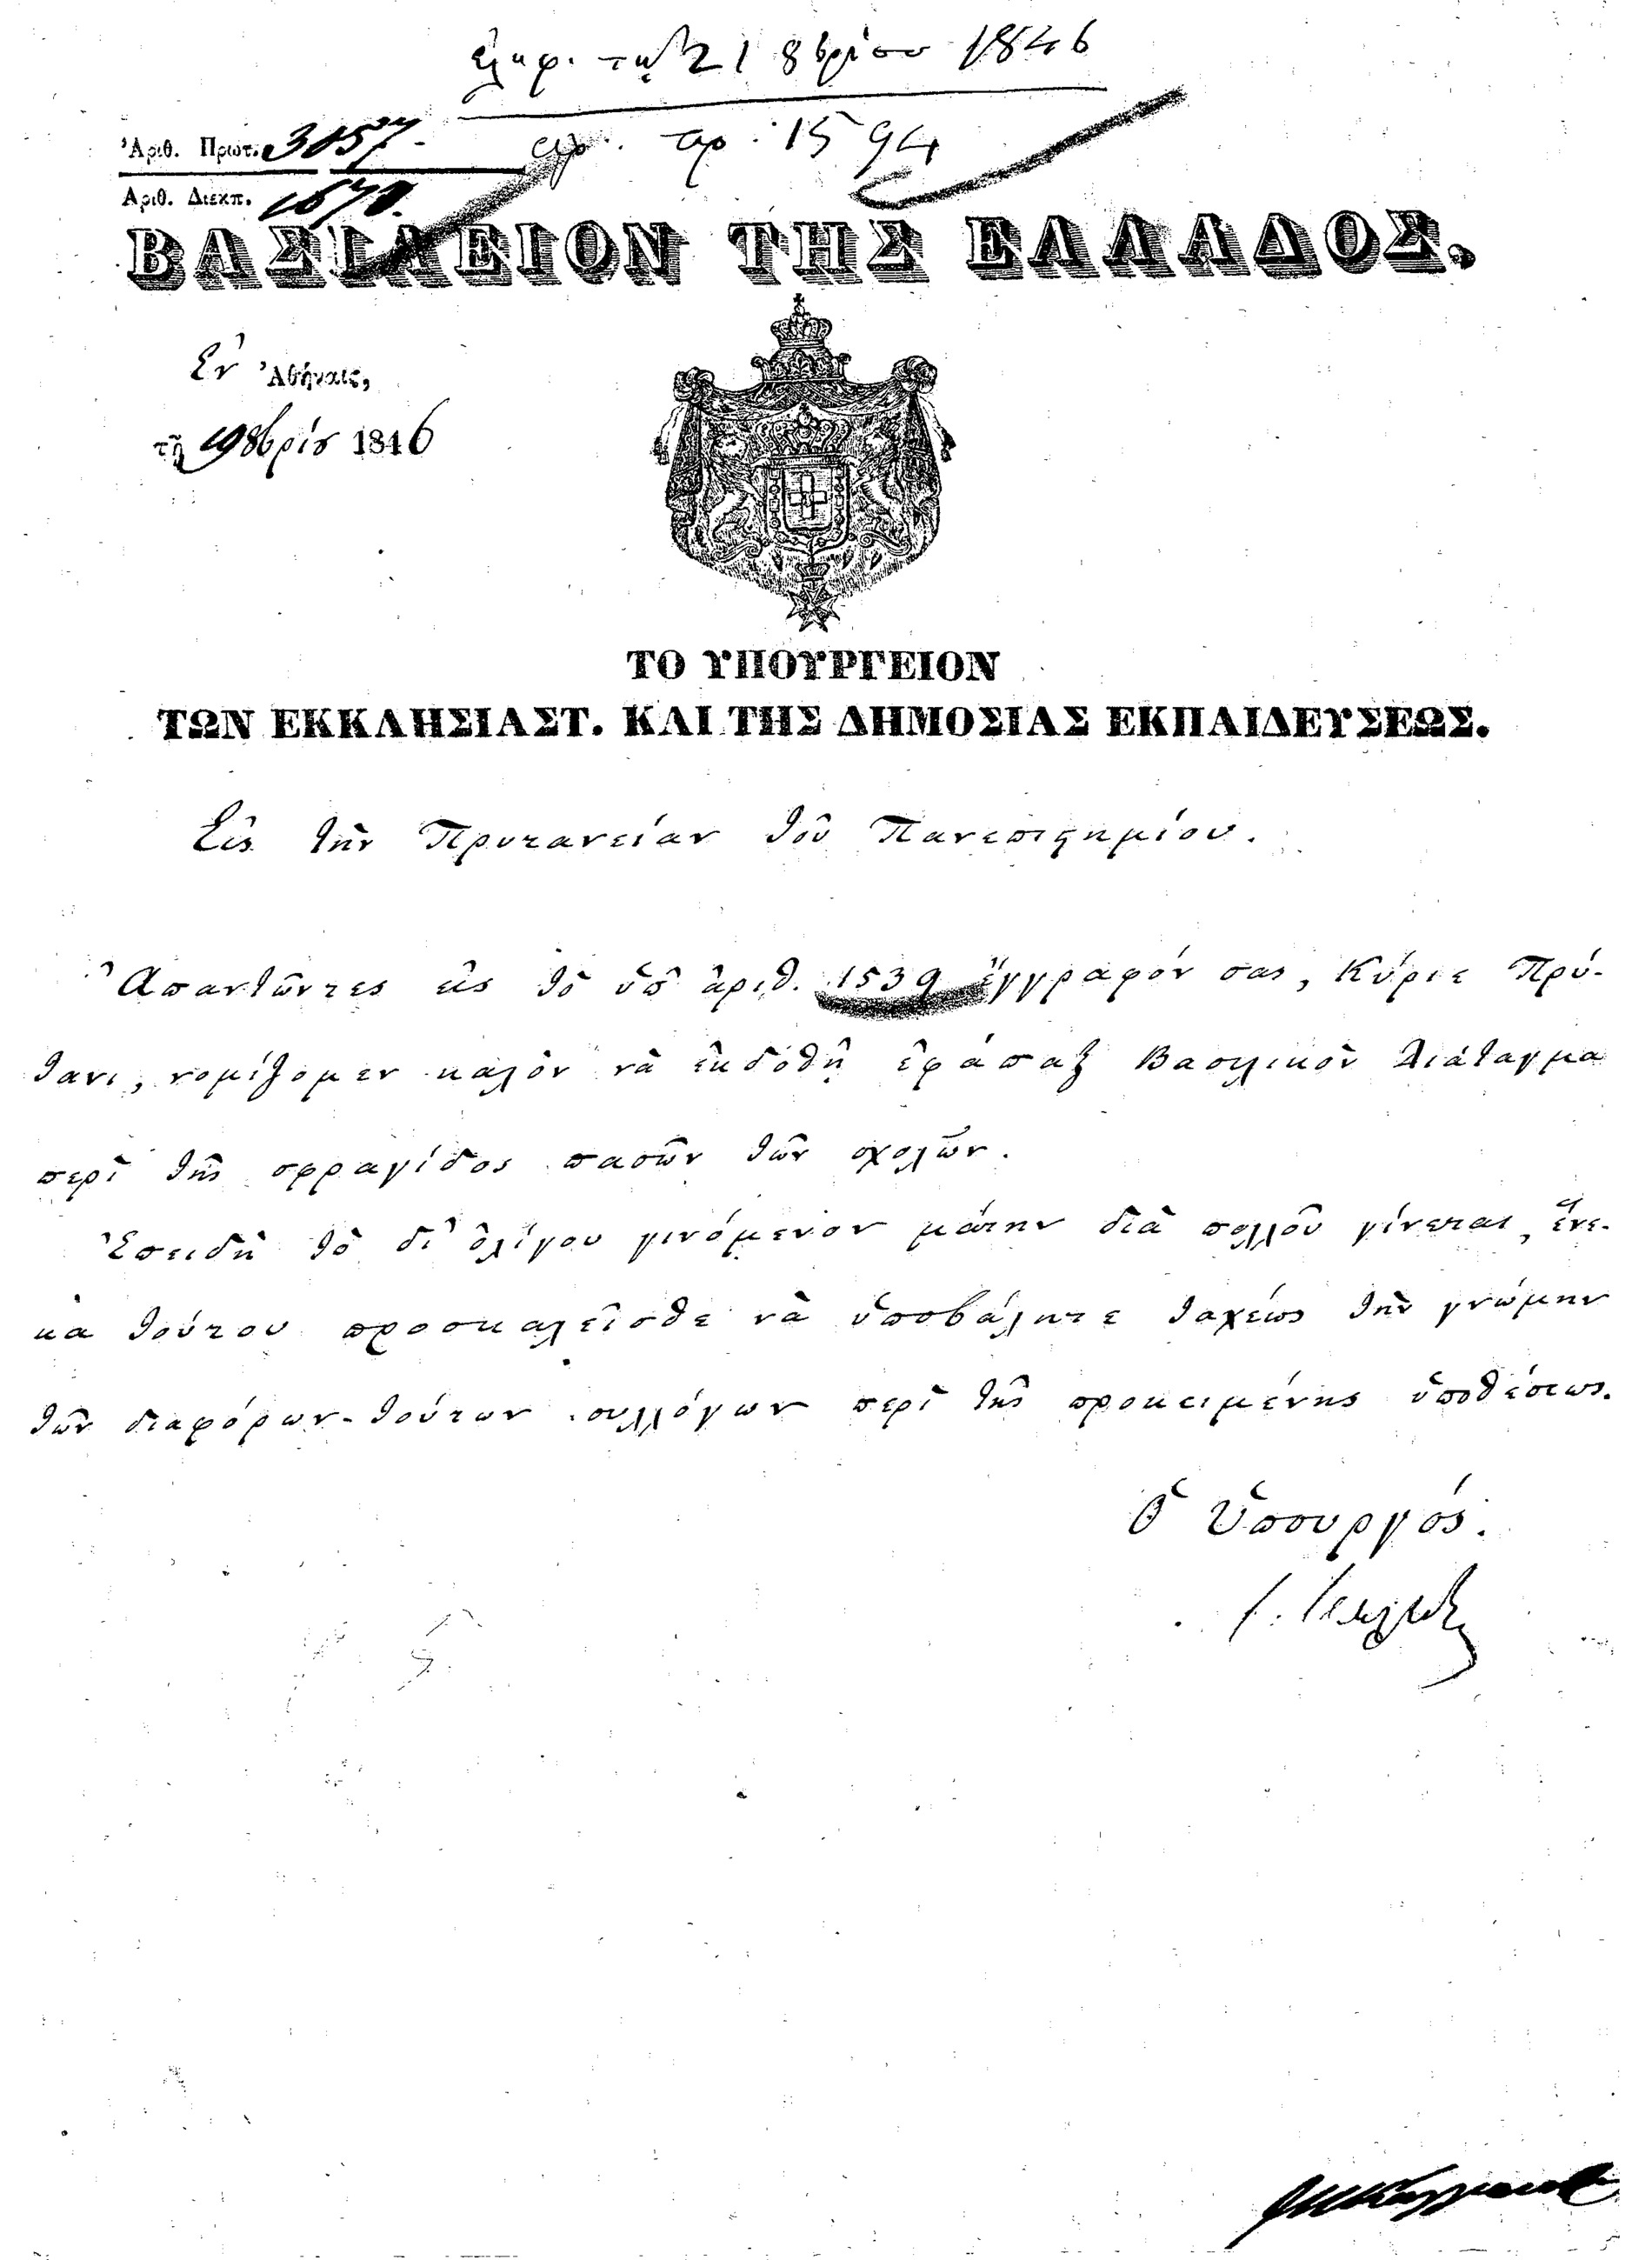 ἐλήφ. τῇ 21 8βρίου 1846
ἀρ. πρ. 1594
Ἀριθ. Πρωτ. 3057
Ἀριθ. Διεκπ.
ΒΑΣΙΛΕΙΟΝ ΤΗΣ ΕΛΛΑΔΟΣ.
Ἐν Ἀθήναις,
τῇ 19 8βρίου 1846
ΤΟ ΥΠΟΥΡΓΕΙΟΝ
ΤΩΝ ΕΚΚΛΗΣΙΑΣΤ. ΚΑΙ ΤΗΣ ΔΗΜΟΣΙΑΣ ΕΚΠΑΙΔΕΥΣΕΩΣ.
Εἰς τὴν Πρυτανείαν τοῦ Πανεπιστημίου.
Ἀπαντῶντες εἰς τὸ ὑπ' ἀριθ. 1539 ἔγγραφόν σας, Κύριε Πρύ-
τανι, νομίζομεν καλὸν νὰ ἐκδοθῇ ἐφάπαξ Βασιλικὸν Διάταγμα
περὶ τῆς σφραγίδος πασῶν τῶν σχολῶν.
Ἐπειδὴ τὸ δι' ὀλίγου γινόμενον μάτην διὰ πολλοῦ γίνεται, ἕνε-
κα τούτου προσκαλεῖσθε νὰ ὑποβάλητε ταχέως τὴν γνώμην
τῶν διαφόρων τούτων συλλόγων περὶ τῆς προκειμένης ὑποθέσεως.
Ὁ Ὑπουργός.